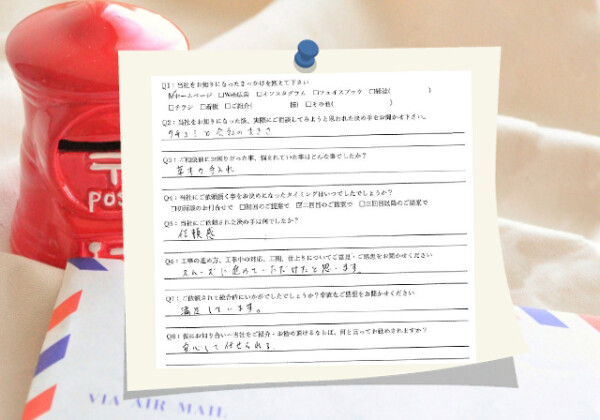 Q1：当社をお知りになったきっかけを教えて下さい
☑ホームページ □Web広告 □インスタグラム □フェイスブック □雑誌( )
□チラシ □看板 □ご紹介( 様) □その他( )
Q2：当社をお知りになった後、実際にご相談してみようと思われた決め手をお聞かせ下さい。
クチコミと会社の大きさ
Q3：ご相談前にお困りだった事、悩まれていた事はどんな事でしたか？
草木の手入れ
Q4：当社にご依頼頂く事をお決めになったタイミングはいつでしたでしょうか？
□初回のお打合せで □初回のご提案で ☑二回目のご提案で □三回目以降のご提案で
Q5：当社にご依頼された決め手は何でしたか？
信頼感
Q6：工事の進め方、工事中の対応、工期、仕上りについてご意見・ご感想をお聞かせください
スムーズに進めていただけたと思います
Q7：ご依頼されて総合的にいかがでしたでしょうか？率直なご感想をお聞かせください
満足しています。
Q8：仮にお知り合いへ当社をご紹介・お勧め頂けるならば、何と言ってお勧めされますか？
安心して任せられる
〒
POS
VIA AIR MAIL